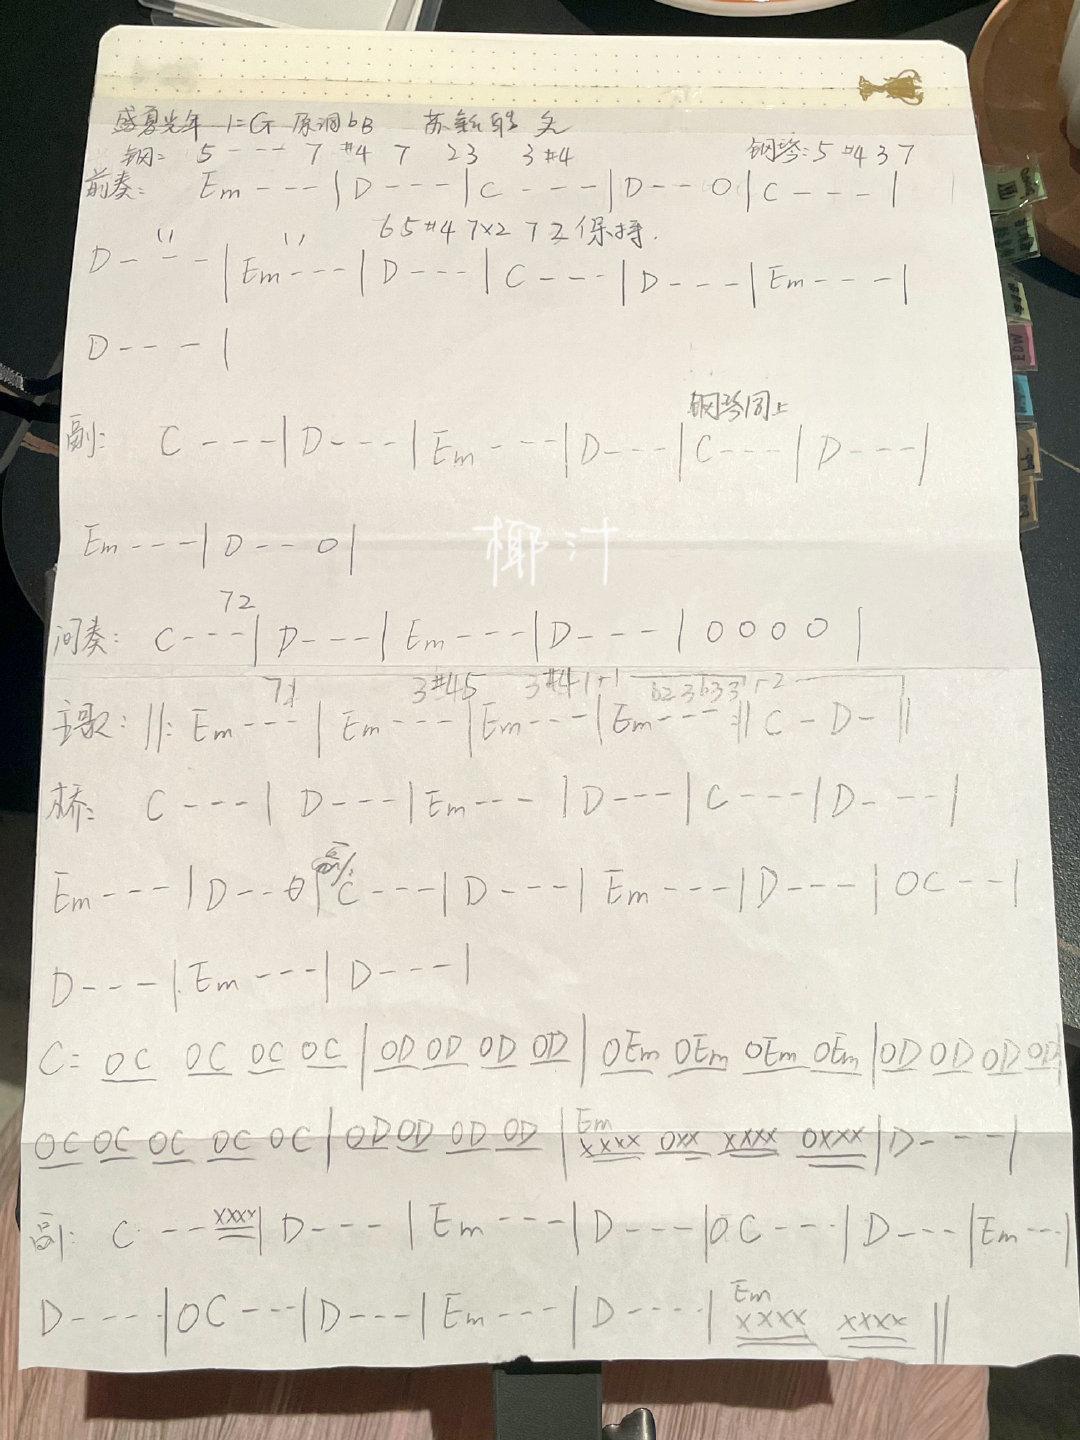 盛夏光年 1=G 原调bB
钢: 5 - - - 7 #4 7 23 3 #4 钢琴: 5 #4 3 7
前奏: Em - - - | D - - - | C - - - | D - - 0 | C - - - |
65#47x2 72 保持.
D - - - | Em - - - | D - - - | C - - - | D - - - | Em - - - |
D - - - |
钢琴同上
副: C - - - | D - - - | Em - - - | D - - - | C - - - | D - - - |
Em - - - | D - - 0 |
椰汁
72
间奏: C - - - | D - - - | Em - - - | D - - - | 0 0 0 0 |
71 3#45 3#41+1
主歌: ‖: Em - - - | Em - - - | Em - - - | Em - - - :‖ C - D - ‖
桥: C - - - | D - - - | Em - - - | D - - - | C - - - | D - - - |
副:
Em - - - | D - - 0 | C - - - | D - - - | Em - - - | D - - - | 0C - - |
D - - - | Em - - - | D - - - |
C: 0C 0C 0C 0C | 0D 0D 0D 0D | 0Em 0Em 0Em 0Em | 0D 0D 0D 0D |
0C 0C 0C 0C 0C | 0D 0D 0D 0D | Em xxxx 0xx xxxx 0xxx | D - - - |
副: C - - xxxx | D - - - | Em - - - | D - - - | 0C - - - | D - - - | Em - - - |
D - - - - | 0C - - - | D - - - | Em - - - | D - - - - | Em xxxx xxxx ‖